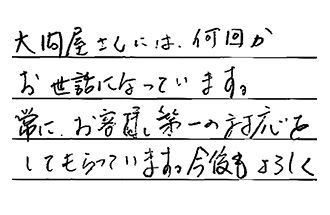 大問屋さんには、何回か
お世話になっています。
常に、お客様第一の対応を
してもらっています。今後もよろしく